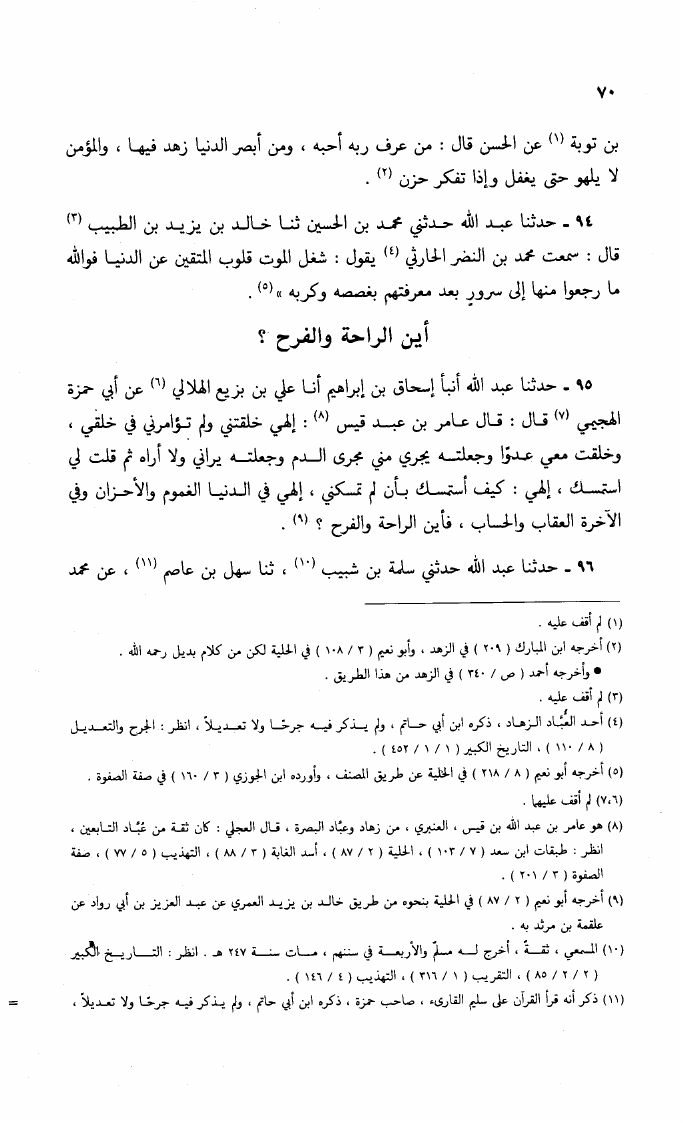 ٧٠
بن توبة (١) عن الحسن قال : من عرف ربه أحبه ، ومن أبصر الدنيا زهد فيها ، والمؤمن
لا يلهو حتى يغفل وإذا تفكر حزن (٢) .
٩٤ ـ حدثنا عبد الله حدثني محمد بن الحسين ثنا خالد بن يزيد بن الطبيب (٣)
قال : سمعت محمد بن النضر الحارثي (٤) يقول : شغل الموت قلوب المتقين عن الدنيا فوالله
ما رجعوا منها إلى سرور بعد معرفتهم بغصصه وكربه » (٥) .
أين الراحة والفرح ؟
٩٥ ـ حدثنا عبد الله أنبأ إسحاق بن إبراهيم أنا علي بن بزيع الهلالي (٦) عن أبي حمزة
الهجيمي (٧) قال : قال عامر بن عبد قيس (٨) : إلهي خلقتني ولم تؤامرني في خلقي ،
وخلقت معي عدوّا وجعلته يجري مني مجرى الدم وجعلته يراني ولا أراه ثم قلت لي
استمسك ، إلهي : كيف أستمسك بأن لم تمسكني ، إلهي في الدنيا الغموم والأحزان وفي
الآخرة العقاب والحساب ، فأين الراحة والفرح ؟ (٩) .
٩٦ ـ حدثنا عبد الله حدثني سلمة بن شبيب (١٠) ، ثنا سهل بن عاصم (١١) ، عن محمد
(١) لم أقف عليه .
(٢) أخرجه ابن المبارك ( ٢٠٩ ) في الزهد ، وأبو نعيم ( ٣ / ١٠٨ ) في الحلية لكن من كلام بديل رحمه الله .
● وأخرجه أحمد ( ص / ٣٤٠ ) في الزهد من هذا الطريق .
(٣) لم أقف عليه .
(٤) أحد العُبَّاد الزهاد ، ذكره ابن أبي حاتم ، ولم يذكر فيه جرحًا ولا تعديلاً ، انظر : الجرح والتعديل
( ٨ / ١١٠ ) ، التاريخ الكبير ( ١ / ١ / ٤٥٢ ) .
(٥) أخرجه أبو نعيم ( ٨ / ٢١٨ ) في الحلية عن طريق المصنف ، وأورده ابن الجوزي ( ٣ / ١٦٠ ) في صفة الصفوة .
(٧،٦) لم أقف عليها .
(٨) هو عامر بن عبد الله بن قيس ، العنبري ، من زهاد وعبَّاد البصرة ، قال العجلي : كان ثقة من عُبَّاد التابعين ،
انظر : طبقات ابن سعد ( ٧ / ١٠٣ ) ، الحلية ( ٢ / ٨٧ ) ، أسد الغابة ( ٣ / ٨٨ ) ، التهذيب ( ٥ / ٧٧ ) ، صفة
الصفوة ( ٣ / ٢٠١ ) .
(٩) أخرجه أبو نعيم ( ٢ / ٨٧ ) في الحلية بنحوه من طريق خالد بن يزيد العمري عن عبد العزيز بن أبي رواد عن
علقمة بن مرثد به .
(١٠) المسمعي ، ثقةٌ ، أخرج له مسلمٌ والأربعة في سننهم ، مات سنة ٢٤٧ هـ . انظر : التاريخ الكبير
( ٢ / ٢ / ٨٥ ) ، التقريب ( ١ / ٣١٦ ) ، التهذيب ( ٤ / ١٤٦ ) .
(١١) ذكر أنه قرأ القرآن على سليم القارىء ، صاحب حمزة ، ذكره ابن أبي حاتم ، ولم يذكر فيه جرحًا ولا تعديلاً ، =